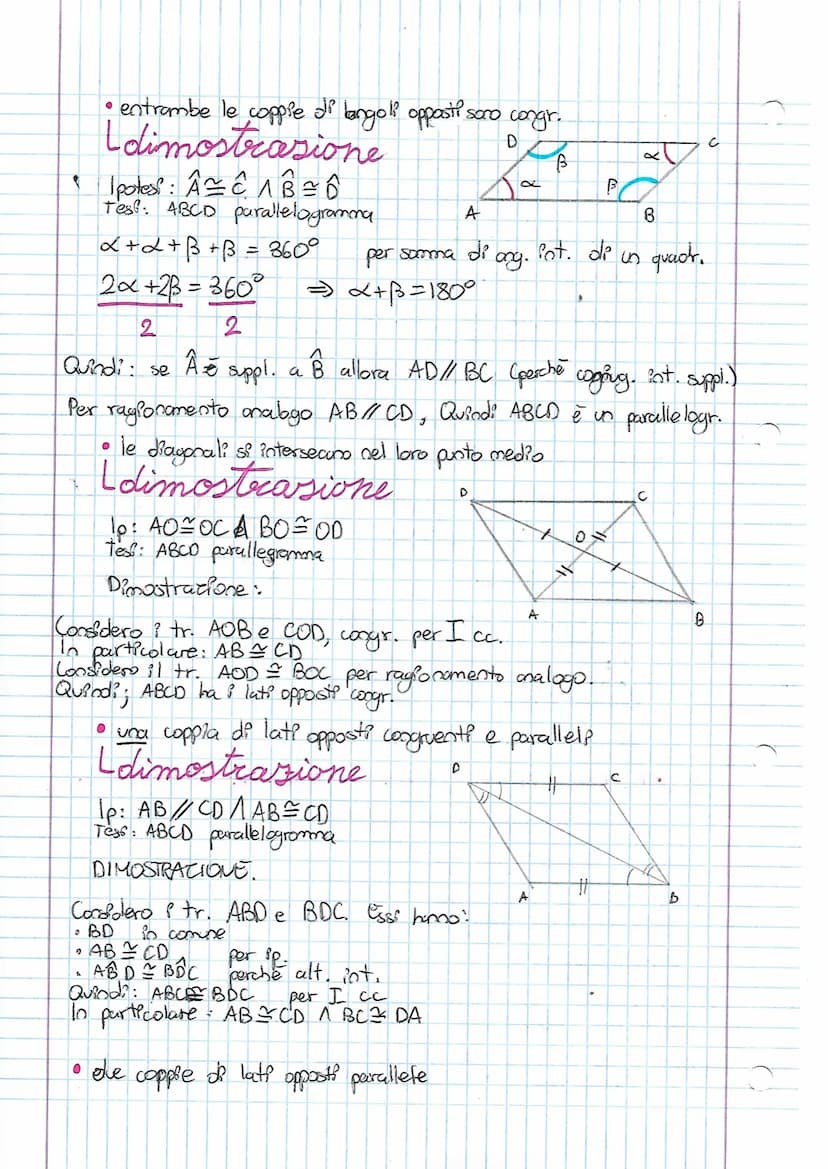 • entrambe le coppie di angoli opposti sono congr.
dimostrazione
D C
β α
α β
A B
Ipotesi: Â ≅ Ĉ ∧ B̂ ≅ D̂
Tesi: ABCD parallelogramma
α+α+β+β = 360° per somma di ang. int. di un quadr.
2α+2β = 360° ⇒ α+β=180°
2 2
Quindi: se Â è suppl. a B̂ allora AD // BC (perché coniug. int. suppl.)
Per ragionamento analogo AB // CD, Quindi ABCD è un parallelogr.
• le diagonali si intersecano nel loro punto medio
dimostrazione
D C
O
A B
Ip: AO≅OC ∧ BO≅OD
Tesi: ABCD parallegramma
Dimostrazione:
Considero i tr. AOB e COD, congr. per I cc.
In particolare: AB ≅ CD
Considero il tr. AOD ≅ BOC per ragionamento analogo.
Quindi; ABCD ha i lati opposti congr.
• una coppia di lati opposti congruenti e paralleli
dimostrazione
D C
A B
Ip: AB // CD ∧ AB≅CD
Tesi: ABCD parallelogramma
DIMOSTRAZIONE.
Considero i tr. ABD e BDC. Essi hanno:
• BD in comune
• AB ≅ CD per ip.
• AB̂D ≅ BD̂C perché alt. int.
Quindi: ABC≅ BDC per I cc
In particolare: AB≅CD ∧ BC≅ DA
• due coppie di lati opposti parallele